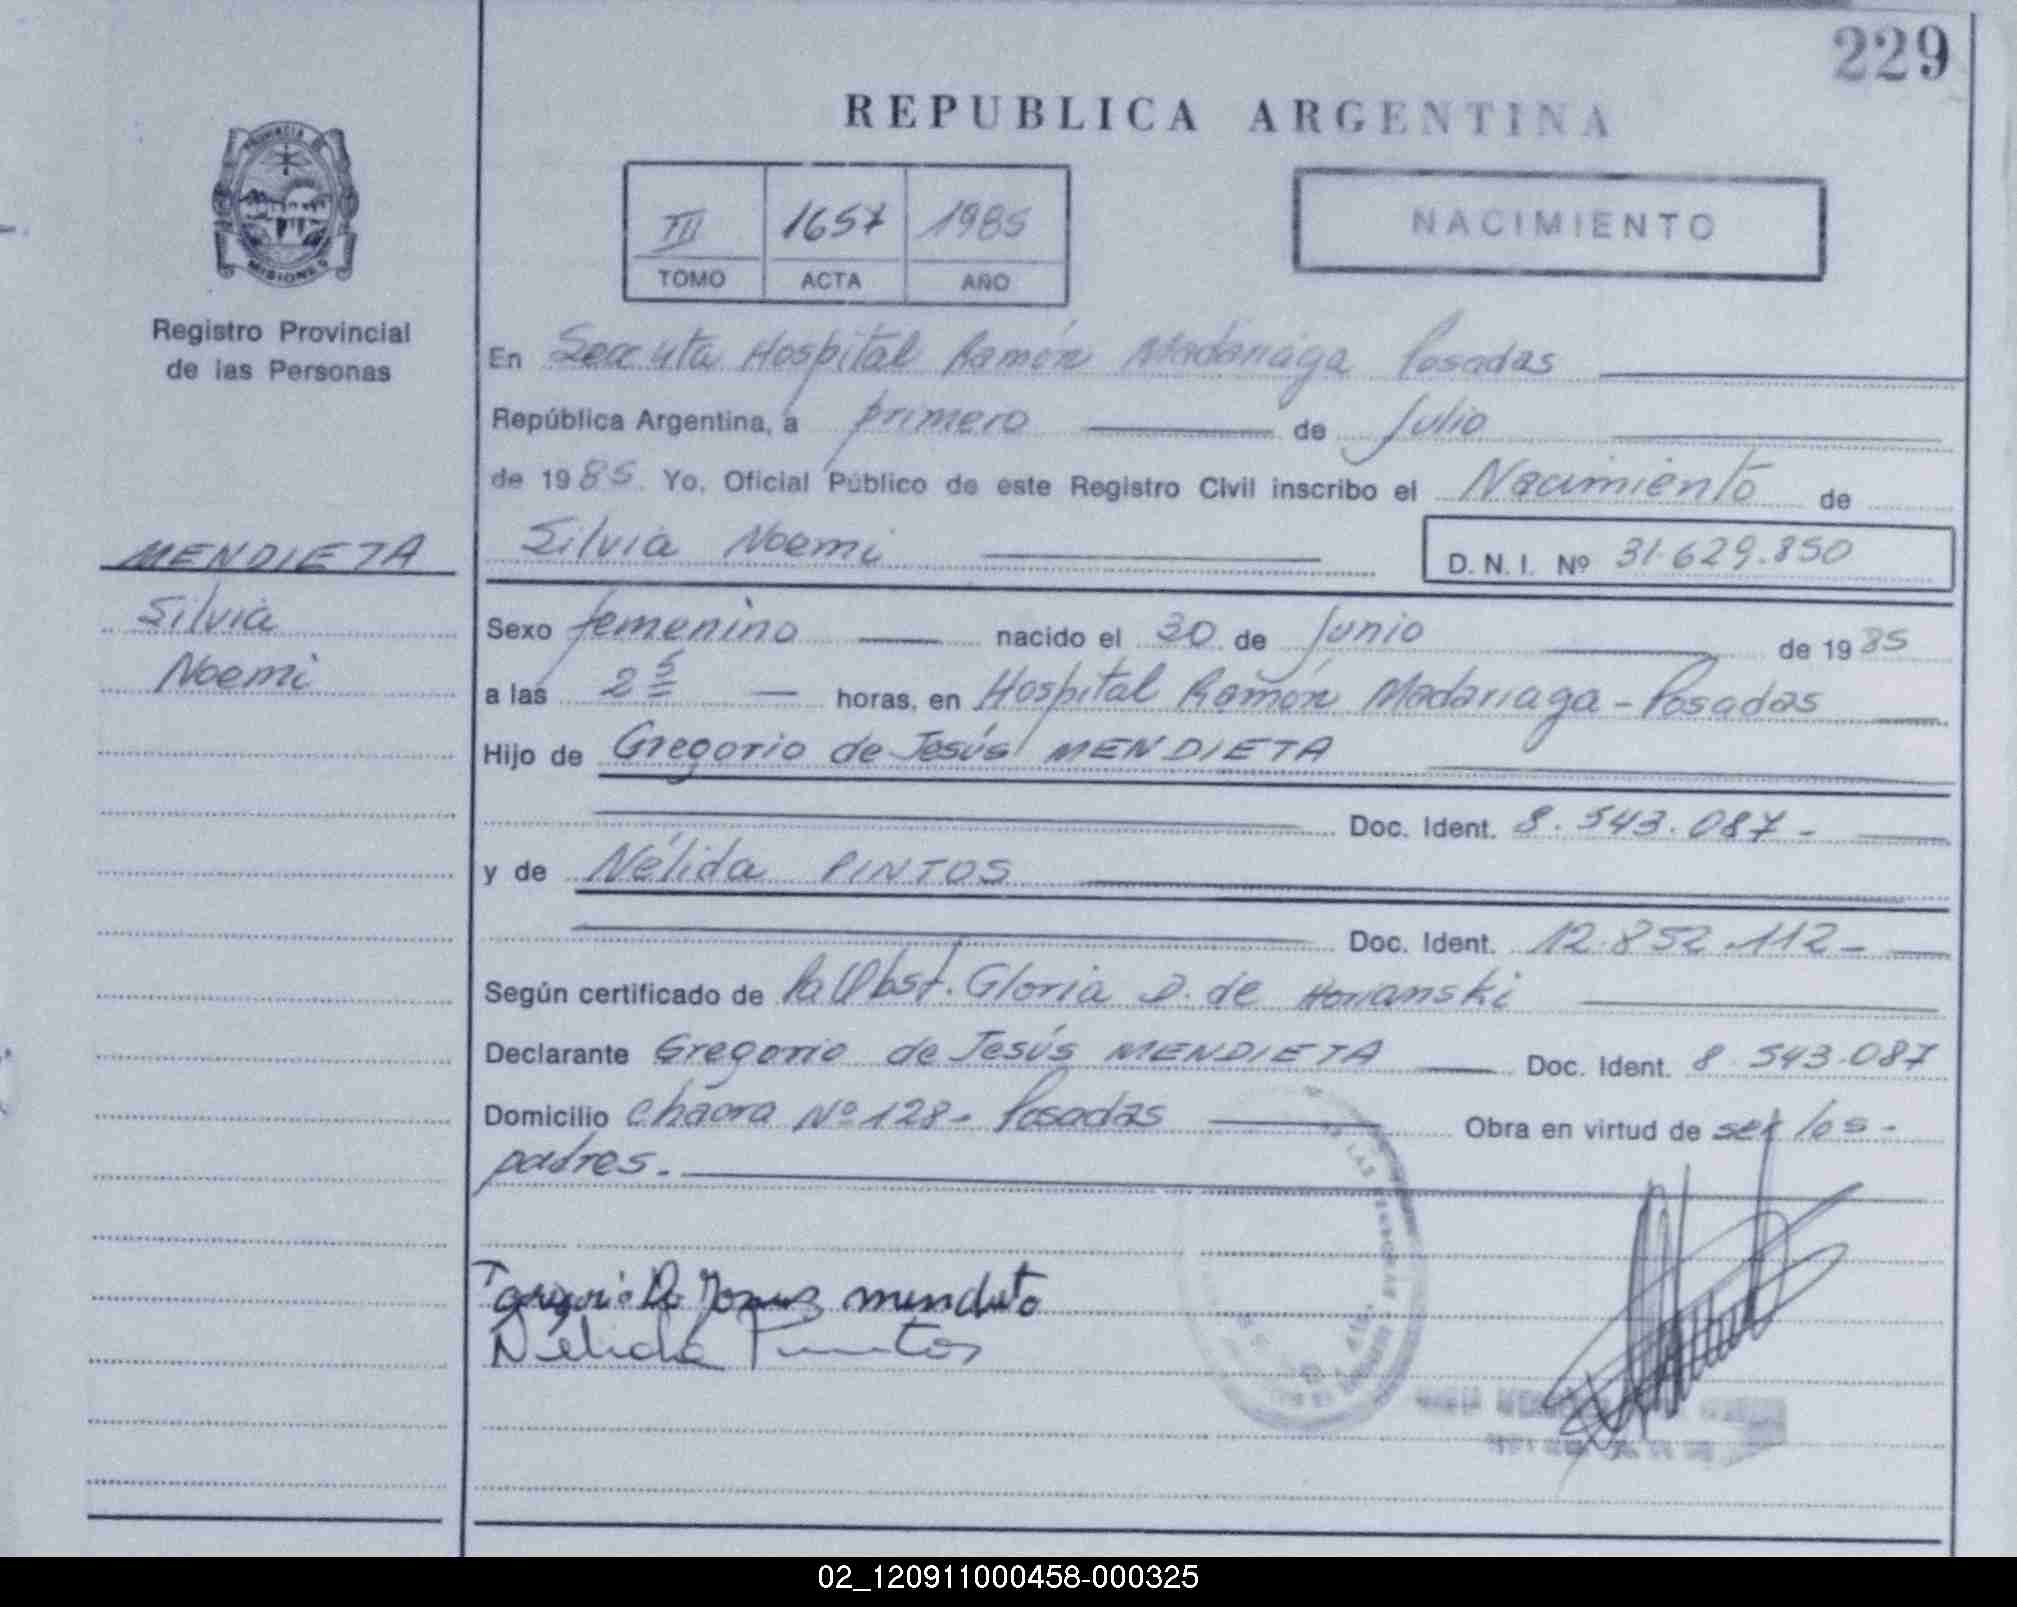 229
REPUBLICA ARGENTINA
PROVINCIA DE
MISIONES
Registro Provincial
de las Personas
III 1657 1985
TOMO ACTA AÑO
NACIMIENTO
En Hospital Ramón Madariaga Posadas
República Argentina, a primero de Julio
de 1985. Yo, Oficial Público de este Registro Civil inscribo el Nacimiento de
Silvia Noemi D. N. I. Nº 31.629.850
MENDIETA
Silvia
Noemi
Sexo femenino nacido el 30 de Junio de 1985
a las 2 5 horas, en Hospital Ramón Madariaga - Posadas
Hijo de Gregorio de Jesús MENDIETA
Doc. Ident. 8.543.087-
y de Nélida PINTOS
Doc. Ident. 12.852.112-
Según certificado de la Obst. Gloria D. de
Declarante Gregorio de Jesús MENDIETA Doc. Ident. 8.543.087
Domicilio Chacra Nº 128- Posadas Obra en virtud de ser los-
padres.
Nélida Pintos
02_120911000458-000325